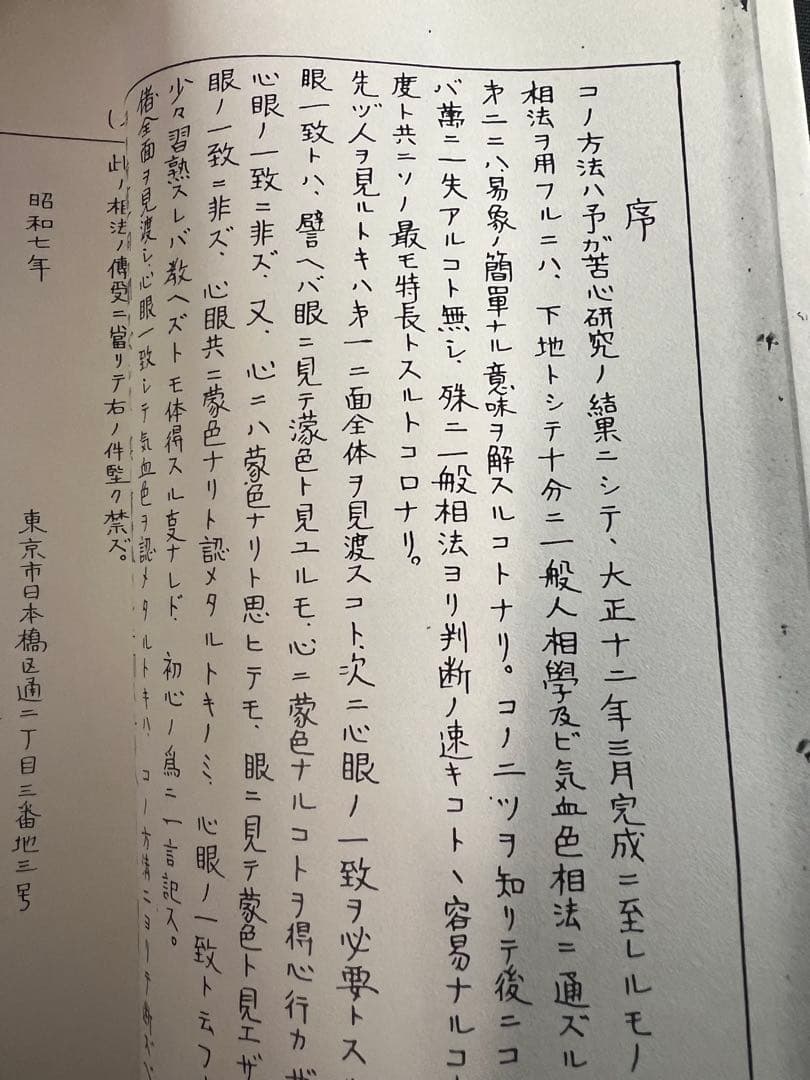 序
コノ方法ハ予ガ苦心研究ノ結果ニシテ、大正十二年三月完成ニ至レルモノ
相法ヲ用フルニハ、下地トシテ十分ニ一般人相學及ビ気血色相法ニ通ズル
㐧二ニハ易象ノ簡單ナル意味ヲ解スルコトナリ。コノ二ツヲ知リテ後ニコ
バ萬ニ一失アルコト無シ、殊ニ一般相法ヨリ判断ノ速キコトヽ容易ナルコ
度ト共ニソノ最モ特長トスルトコロナリ。
先ヅ人ヲ見ルトキハ㐧一ニ面全体ヲ見渡スコト、次ニ心眼ノ一致ヲ必要トス
眼一致トハ、譬ヘバ眼ニ見テ濛色ト見ユルモ、心ニ蒙色ナルコトヲ得心行カザ
心眼ノ一致ニ非ズ、又、心ニハ蒙色ナリト思ヒテモ、眼ニ見テ蒙色ト見エザ
眼ノ一致ニ非ズ、心眼共ニ蒙色ナリト認メタルトキノミ、心眼ノ一致ト云フ
少々習熟スレバ教ヘズトモ体得スル事ナレド、初心ノ爲ニ一言記ス。
偖全面ヲ見渡シ、心眼一致シテ気血色ヲ認メタルトキハ、コノ方ニヨリテ断ズベ
此ノ相法ノ傳受ニ當リテ右ノ件堅ク禁ズ。
昭和七年
東京市日本橋区通二丁目三番地三号